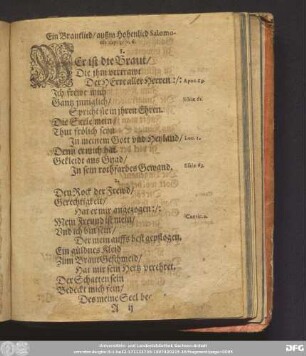 Ein Brautlied/ außm Hohenlied Salomo-
1.
WEr ist die Braut/
Die ihm vertrawt
Der HErr aller Herren :/:
Ich frewe mich
Gantz inniglich/
Spricht sie in jhren Ehren.
Die Seele mein
Thut frölich sein
In meinem Gott vnd Heyland/
Denn er mich hat
Gekleidt aus Gnad/
In sein rothfarbes Gewand.
2.
Den Rock der Frewd/
Gerechtigkeit/
Hat er mir angezogen :/:
Mein Freund ist mein/
Vnd ich bin sein/
Der mein auffs best gepflogen.
Ein güldnes Kleid
Zum Braut Geschmeid/
Hat mir sein Hertz verehret.
Der Schatten sein
Bedeckt mich fein/
Des meine Seel be-
A ij